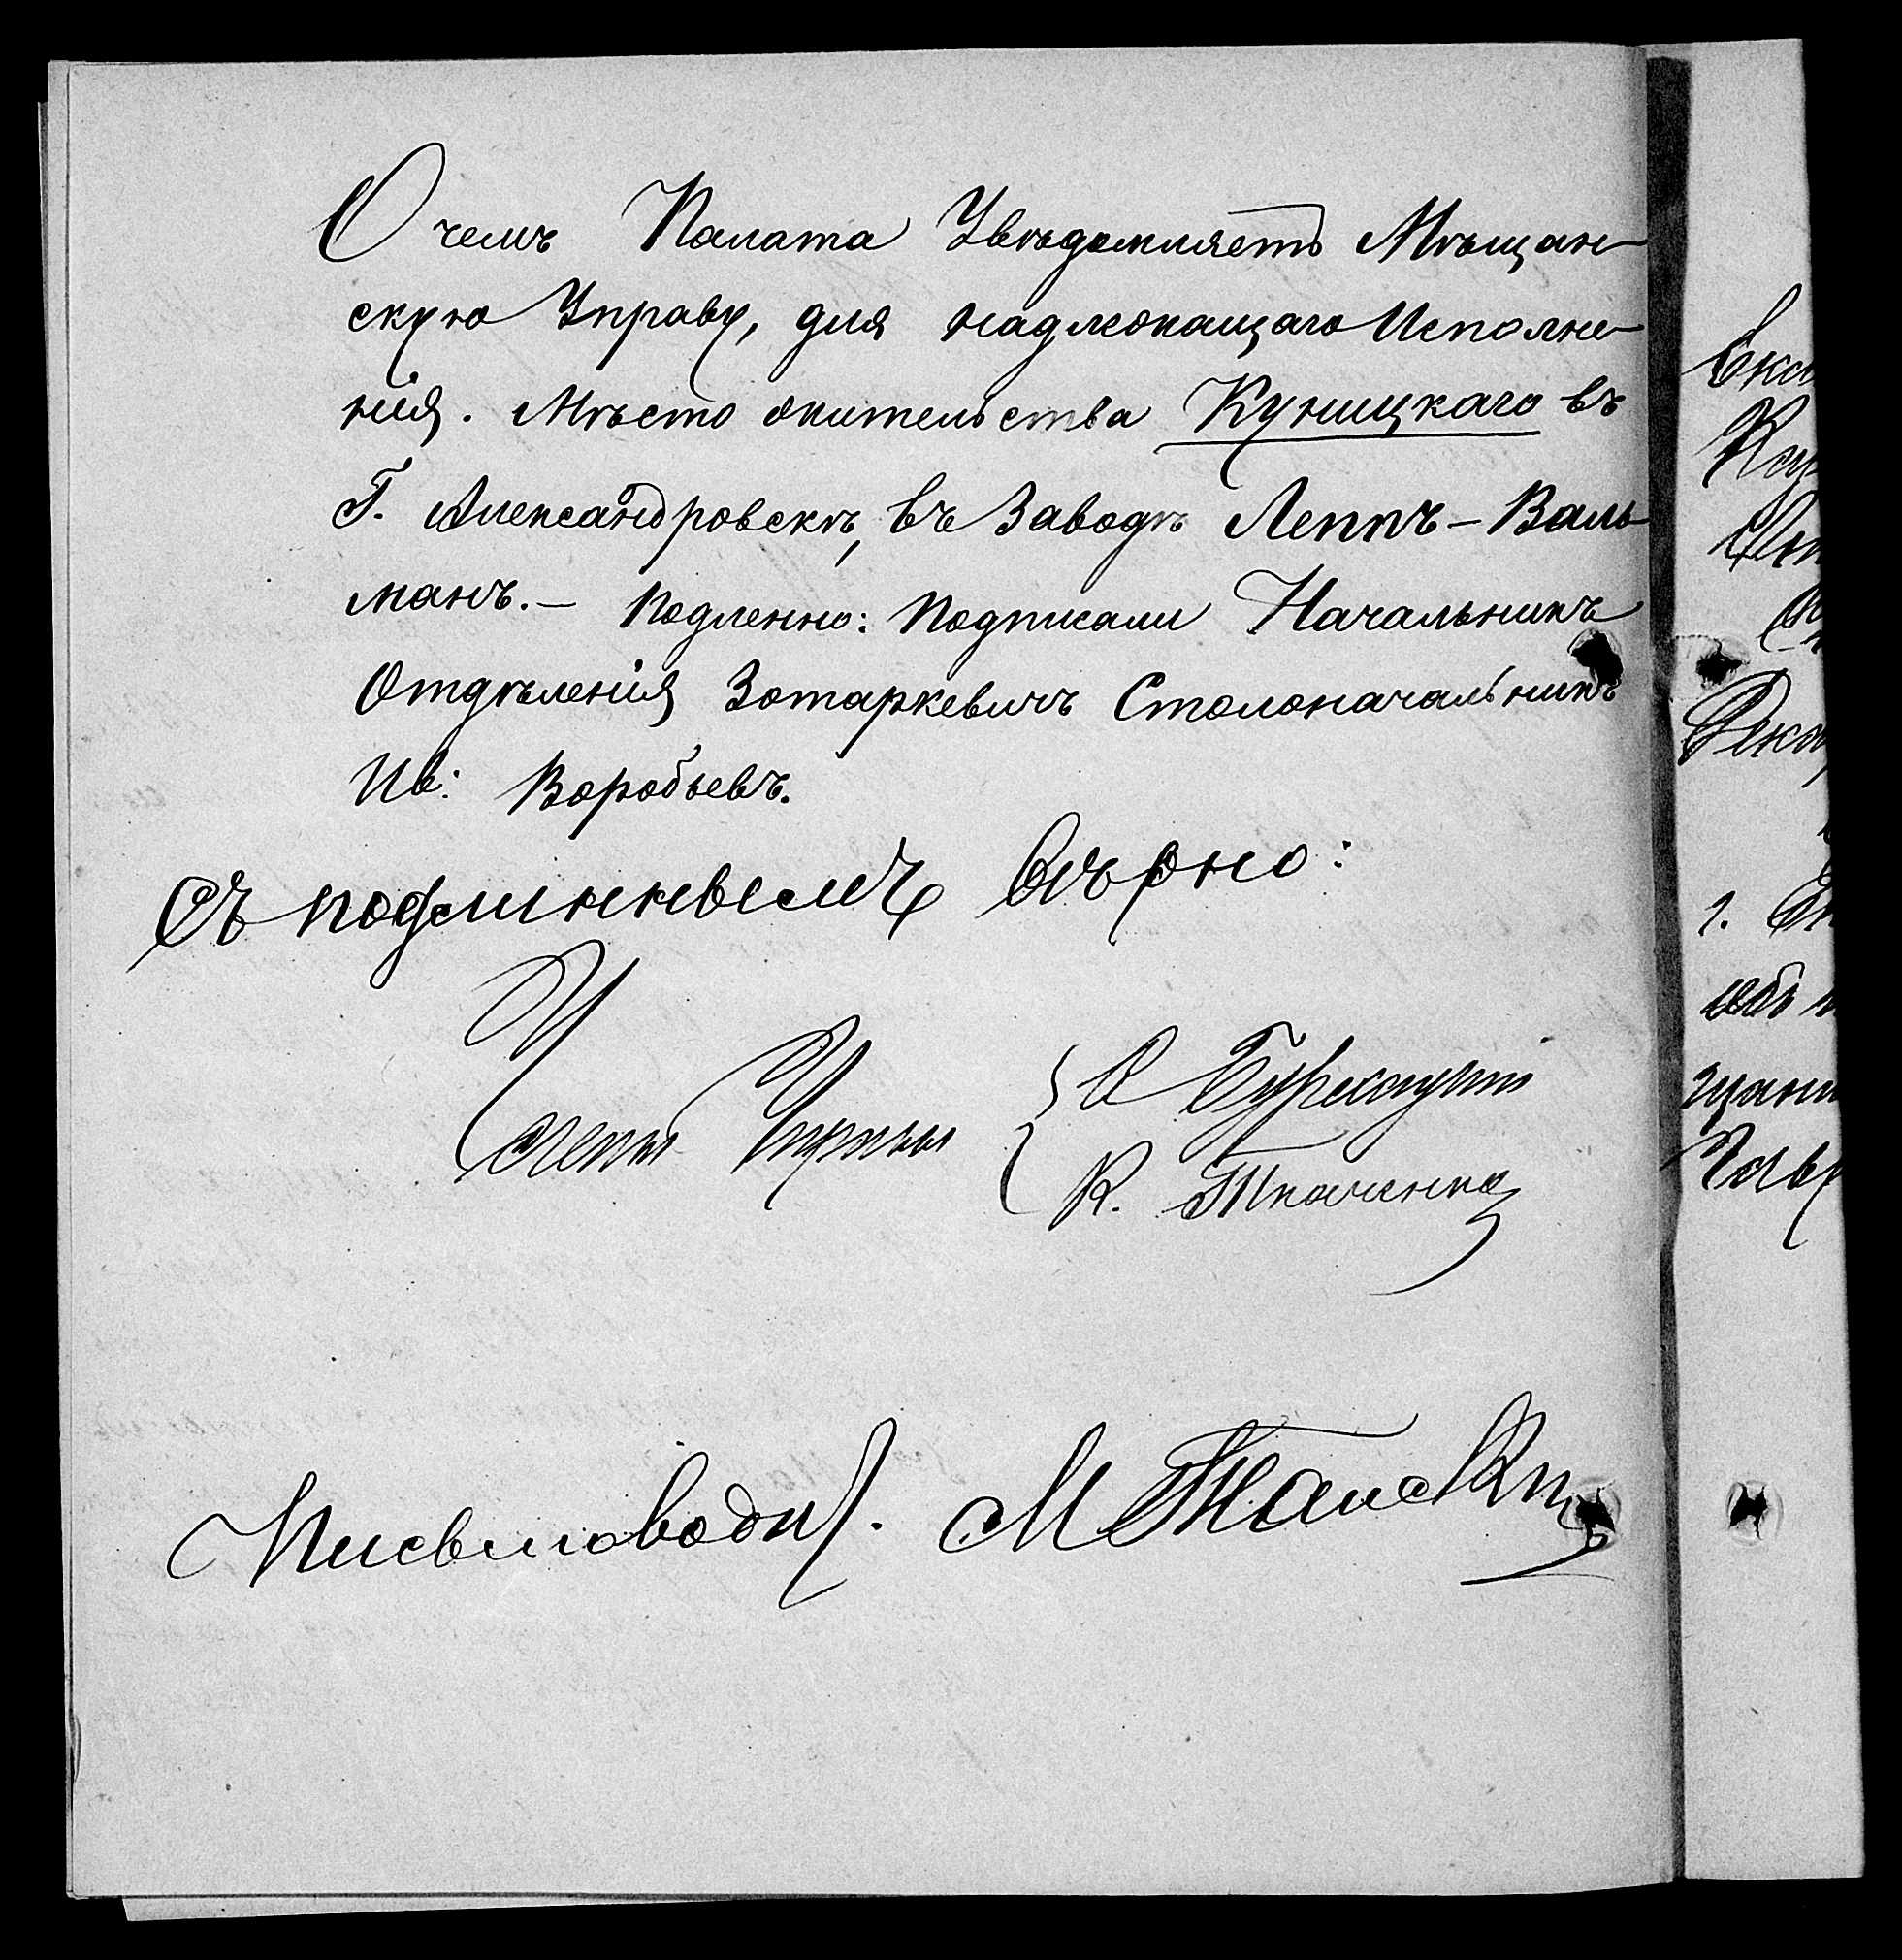 О чемъ Палата Увѣдомляетъ Мѣщан-
скую Управу, для надлежащаго Исполне-
нія. Мѣсто жительства Куницкаго въ
Г. Александровскѣ, въ Заводѣ Леппъ – Валь-
манъ. – Подленно: Подписали Начальникъ
Отдѣленія Зотаркевичъ Столоначальникъ
Ив: Воробьевъ.
Съ подлиннымъ Вѣрно:
Члены Управы
К. Ткаченко
Письмоводит. М